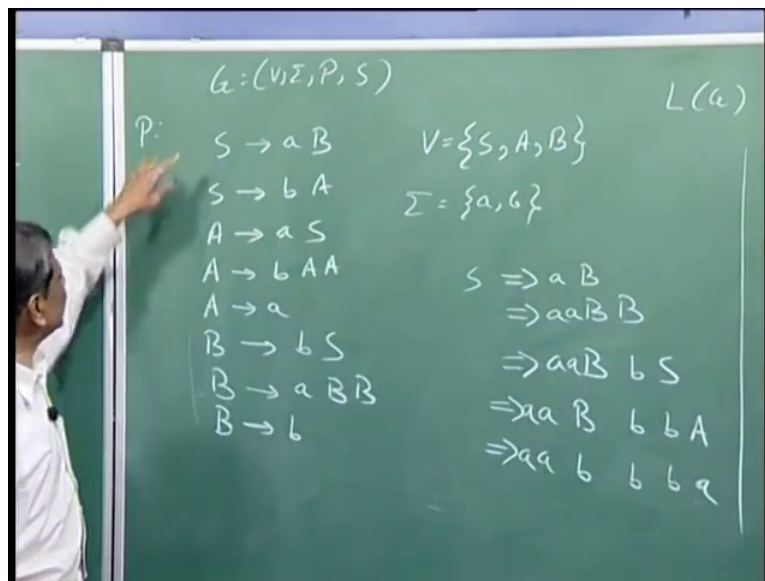 G = (V, Σ, P, S)
L(G)
P:
S → a B
S → b A
A → a S
A → b A A
A → a
B → b S
B → a B B
B → b
V = {S, A, B}
Σ = {a, b}
S ⇒ a B
⇒ a a B B
⇒ a a B b S
⇒ a a B b b A
⇒ a a b b b a